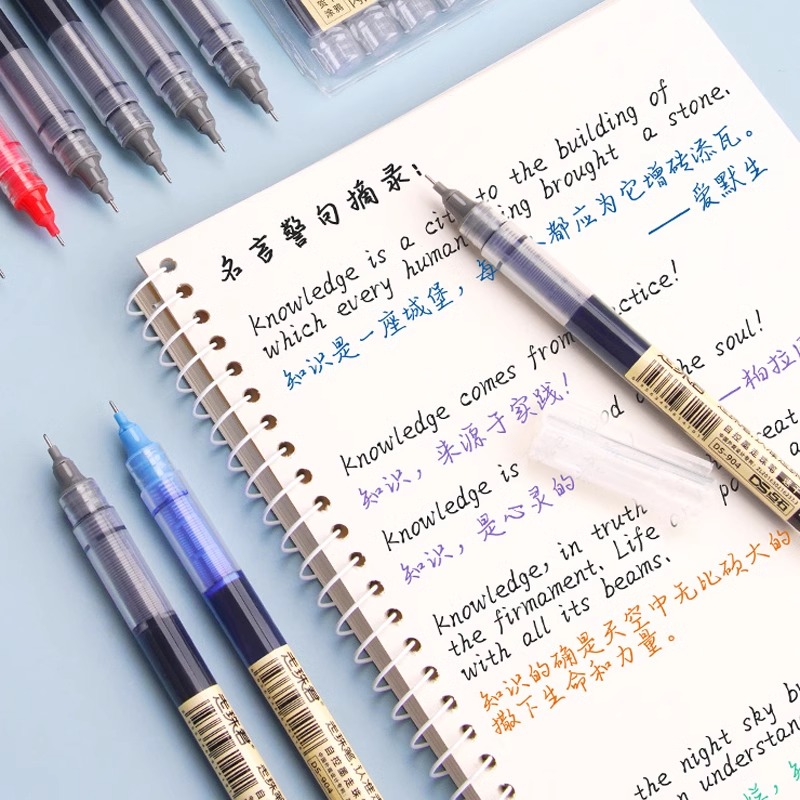 名言警句摘录:
knowledge is a city to the building of
which every human being brought a stone.
知识是一座城堡，每 都应为它增砖添瓦。
——爱默生
knowledge comes from practice!
知识，来源于实践!
knowledge is food of the soul!
知识，是心灵的
——柏拉
knowledge, in truth
the firmament. Life
with all its beams.
知识的确是天空中无比硕大的
撒下生命和力量。
the night sky
understan
走珠笔
自控墨走珠笔
DS-904
走珠笔
自控墨走珠笔
DS-904
自控墨走珠笔
DS-904